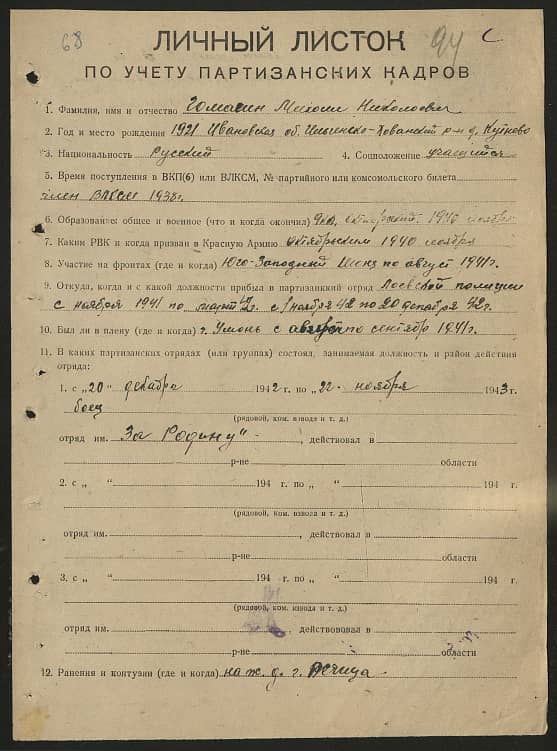 68
94 с
ЛИЧНЫЙ ЛИСТОК
ПО УЧЕТУ ПАРТИЗАНСКИХ КАДРОВ
1. Фамилия, имя и отчество Гомасин Михаил Николаевич
2. Год и место рождения 1921 Ивановская об. Ильинско-Хованский р-н д. Кутново
3. Национальность русский 4. Соцположение учащийся
5. Время поступления в ВКП(б) или ВЛКСМ, № партийного или комсомольского билета
член ВЛКСМ 1938г.
6. Образование общее и военное (что и когда окончил) 1940 ноября
7. Каким РВК и когда призван в Красную Армию октябрьским 1940 ноября
8. Участие на фронтах (где и когда) Юго-Западный по август 1941г.
9. Откуда, когда и с какой должности прибыл в партизанский отряд Лоевской полиции
с ноября 1941 по март 42г. с 1 ноября 42 по 20 декабря 42г.
10. Был ли в плену (где и когда) г. Умонь с август по сентябр 1941г.
11. В каких партизанских отрядах (или группах) состоял, занимаемая должность и район действия
отряда:
1. с „20" декабря 1942 г. по „22" ноября 1943г.
боец
(рядовой, ком. взвода и т. д.)
отряд им. За Родину" , действовал в
р-не области
2. с „ " 194 г. по „ " 194 г.
(рядовой, ком. взвода и т. д.)
отряд им. , действовал в
р-не области
3. с „ " 194 г. по „ " 194 г.
(рядовой, ком. взвода и т. д.)
отряд им. , действововал в
р-не области
12. Ранения и контузии (где и когда) на ж. д. г. Речица